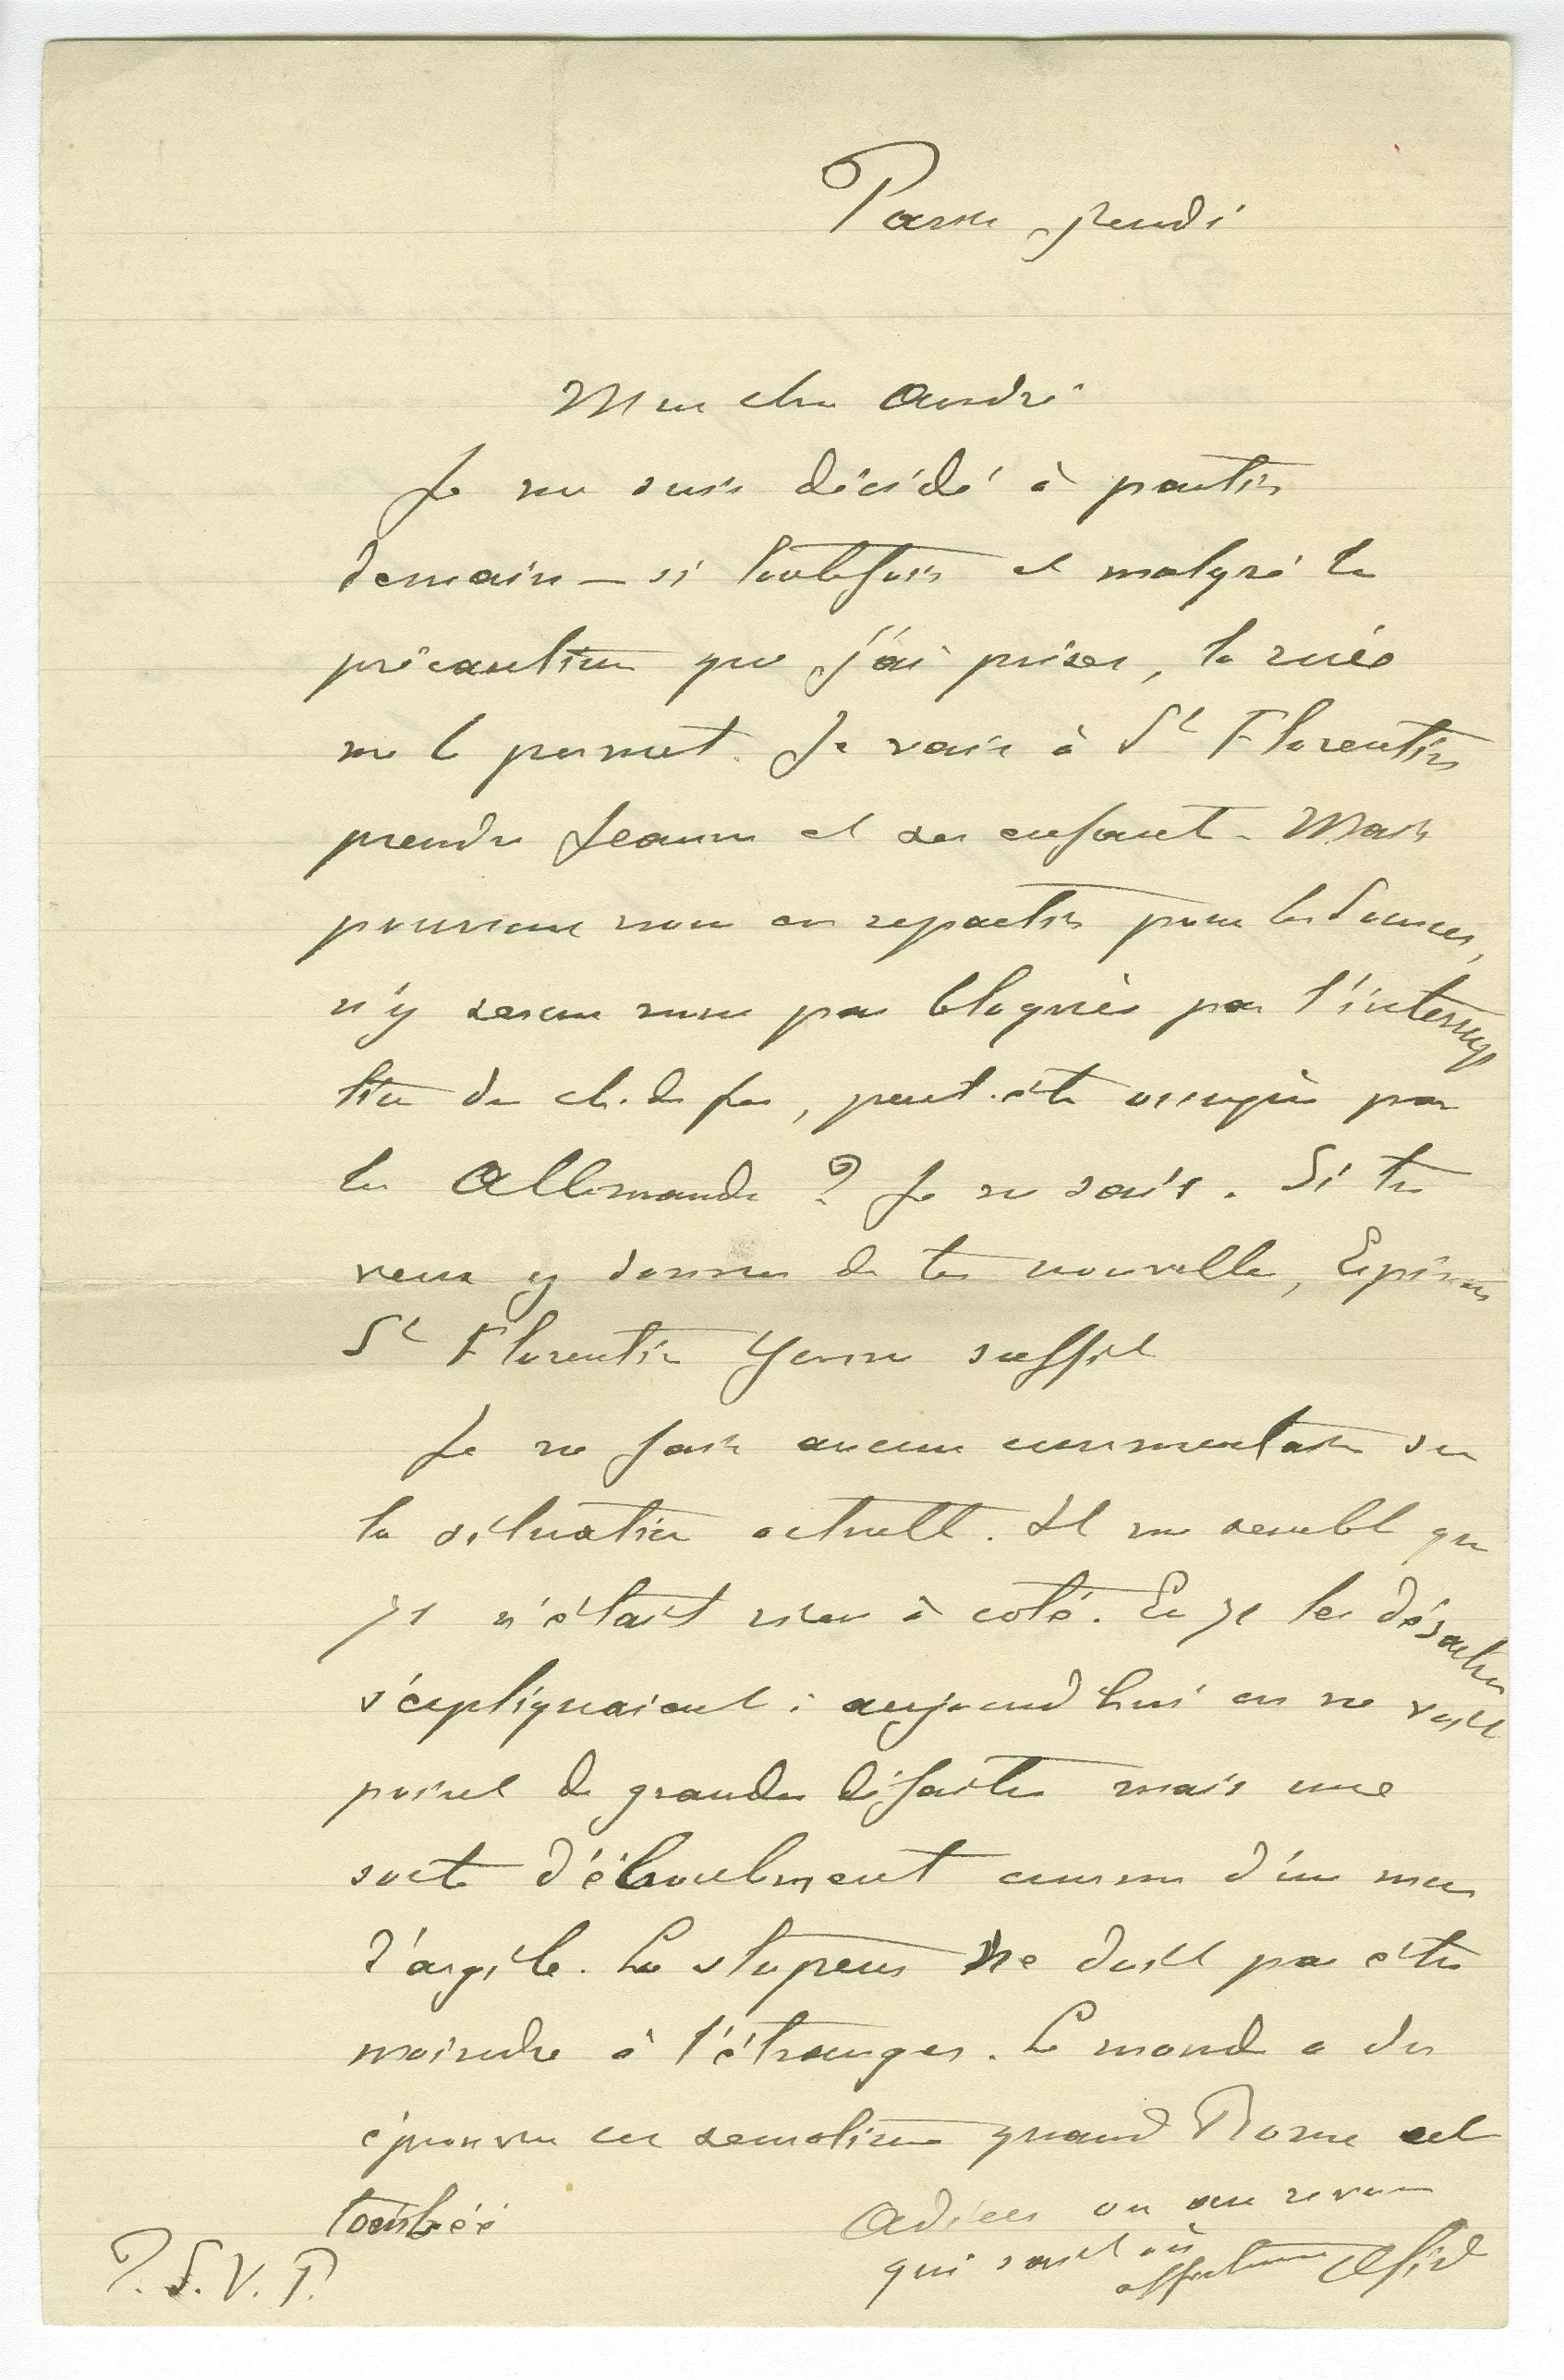 Paris jeudi
Mon cher André
Je me suis décidé à partir
demain – si toutefois et malgré les
précautions que j'ai prises, la ruée
me le permet. Je vais à St Florentin
prendre Jeanne et ses enfants. Mais
pourrons nous en repartir pour les
n'y serons nous pas bloqués par l'interrup
tion du ch. de fer, peut-être occupés par
les Allemands ? Je ne sais. Si tu
veux y donner de tes nouvelles,
St Florentin Yonne suffit
Je ne fais aucun commentaire sur
la situation actuelle. Il me semble que
71 n'était rien à coté. En 71 les désastres
s'expliquaient : aujourd'hui on ne voit
point de grandes défaites mais une
sorte d'éboulement comme d'un mur
d'argile. La stupeur ne doit pas être
moindre à l'étranger. Le monde a du
éprouver ces quand Rome est
tombée
Adieu ou au revoir
qui sait où
affectueux
P.S.V.P.